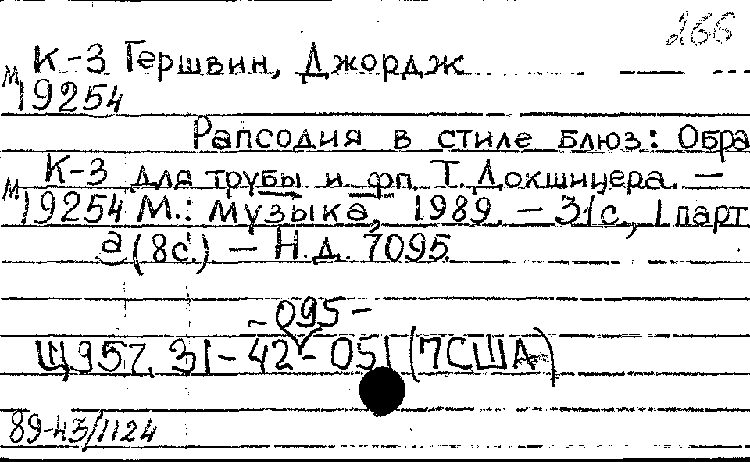 266
К-3 Гершвин, Джордж
М 19254
Рапсодия в стиле блюз: Обра
К-3 для трубы и фп. Т. Докшицера. —
М 19254 М.: Музыка, 1989. — 31 с., 1 парт
а (8 с.) — Н.д. 7095
-095-
Щ957. 31-42-051 (7США)
89-43/1124